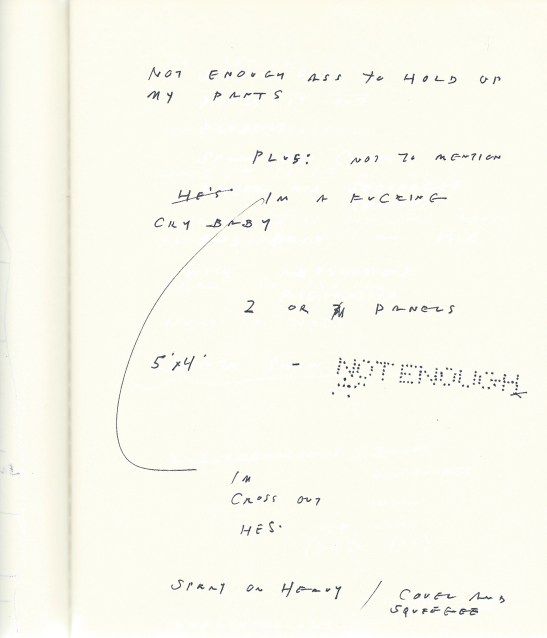 NOT ENOUGH ASS TO HOLD UP
MY PANTS
PLUS: NOT TO MENTION
HE'S I'M A FUCKING
CRY BABY
2 OR PANELS
5'x4' - NOT ENOUGH
I'M
CROSS OUT
HES.
SPRAY ON HEAVY / COVER AND
SQUEEGEE